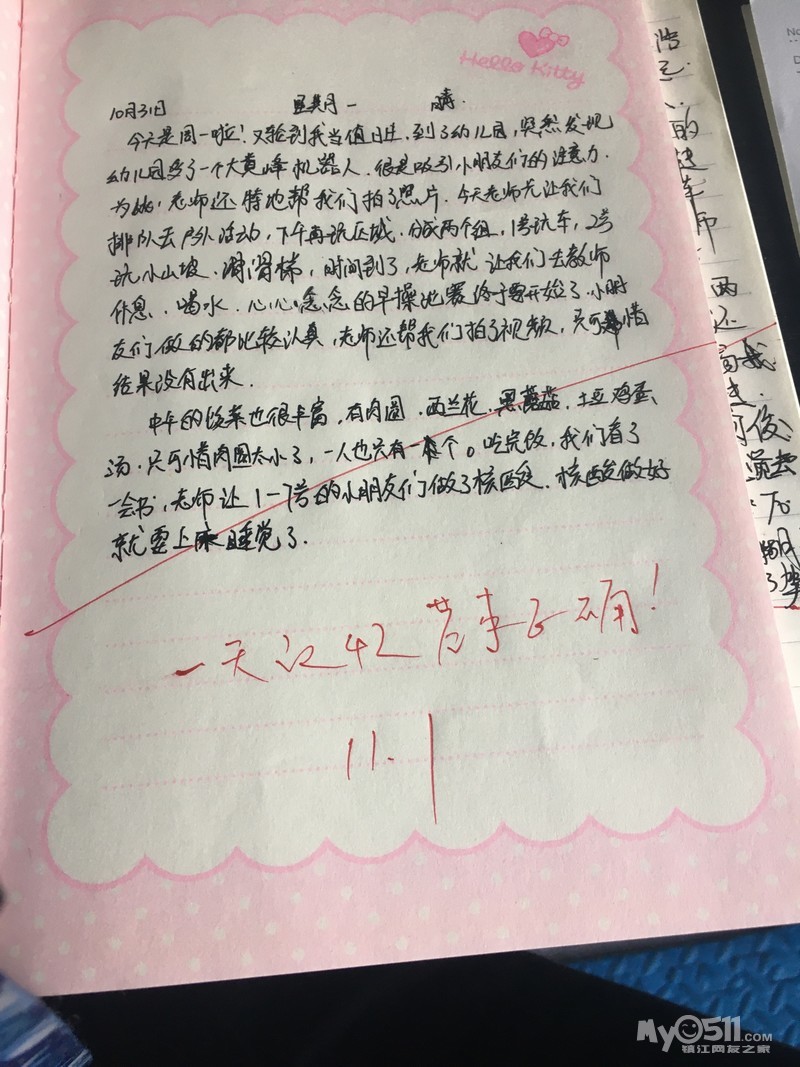 Hello Kitty
10月31日 星期一 晴.
今天是周一啦!又轮到我当值日生.到了幼儿园,突然发现
幼儿园多了一个大黄峰机器人.很是吸引小朋友们的注意力.
为此,老师还特地帮我们拍了照片.今天老师先让我们
排队去户外活动,下午再玩区域.分成两个组,1号玩车,2号
玩小山坡、滑滑梯,时间到了,老师就让我们去教师
休息、喝水.心心念念的早操比赛终于要开始了.小朋
友们做的都比较认真,老师还帮我们拍了视频,只可惜
结果没有出来.
中午的饭菜也很丰富,有肉圆.西兰花.黑蘑菇.土豆鸡蛋
汤.只可惜肉圆太小了,一人也只有一个。吃完饭,我们看了
一会书,老师让1-7号的小朋友们做了核酸.核酸做好
就要上床睡觉了.
一天记42 故事正确!
11.1
浩
的
车
师
两
还
我
俊
My0511.COM
镇江网友之家